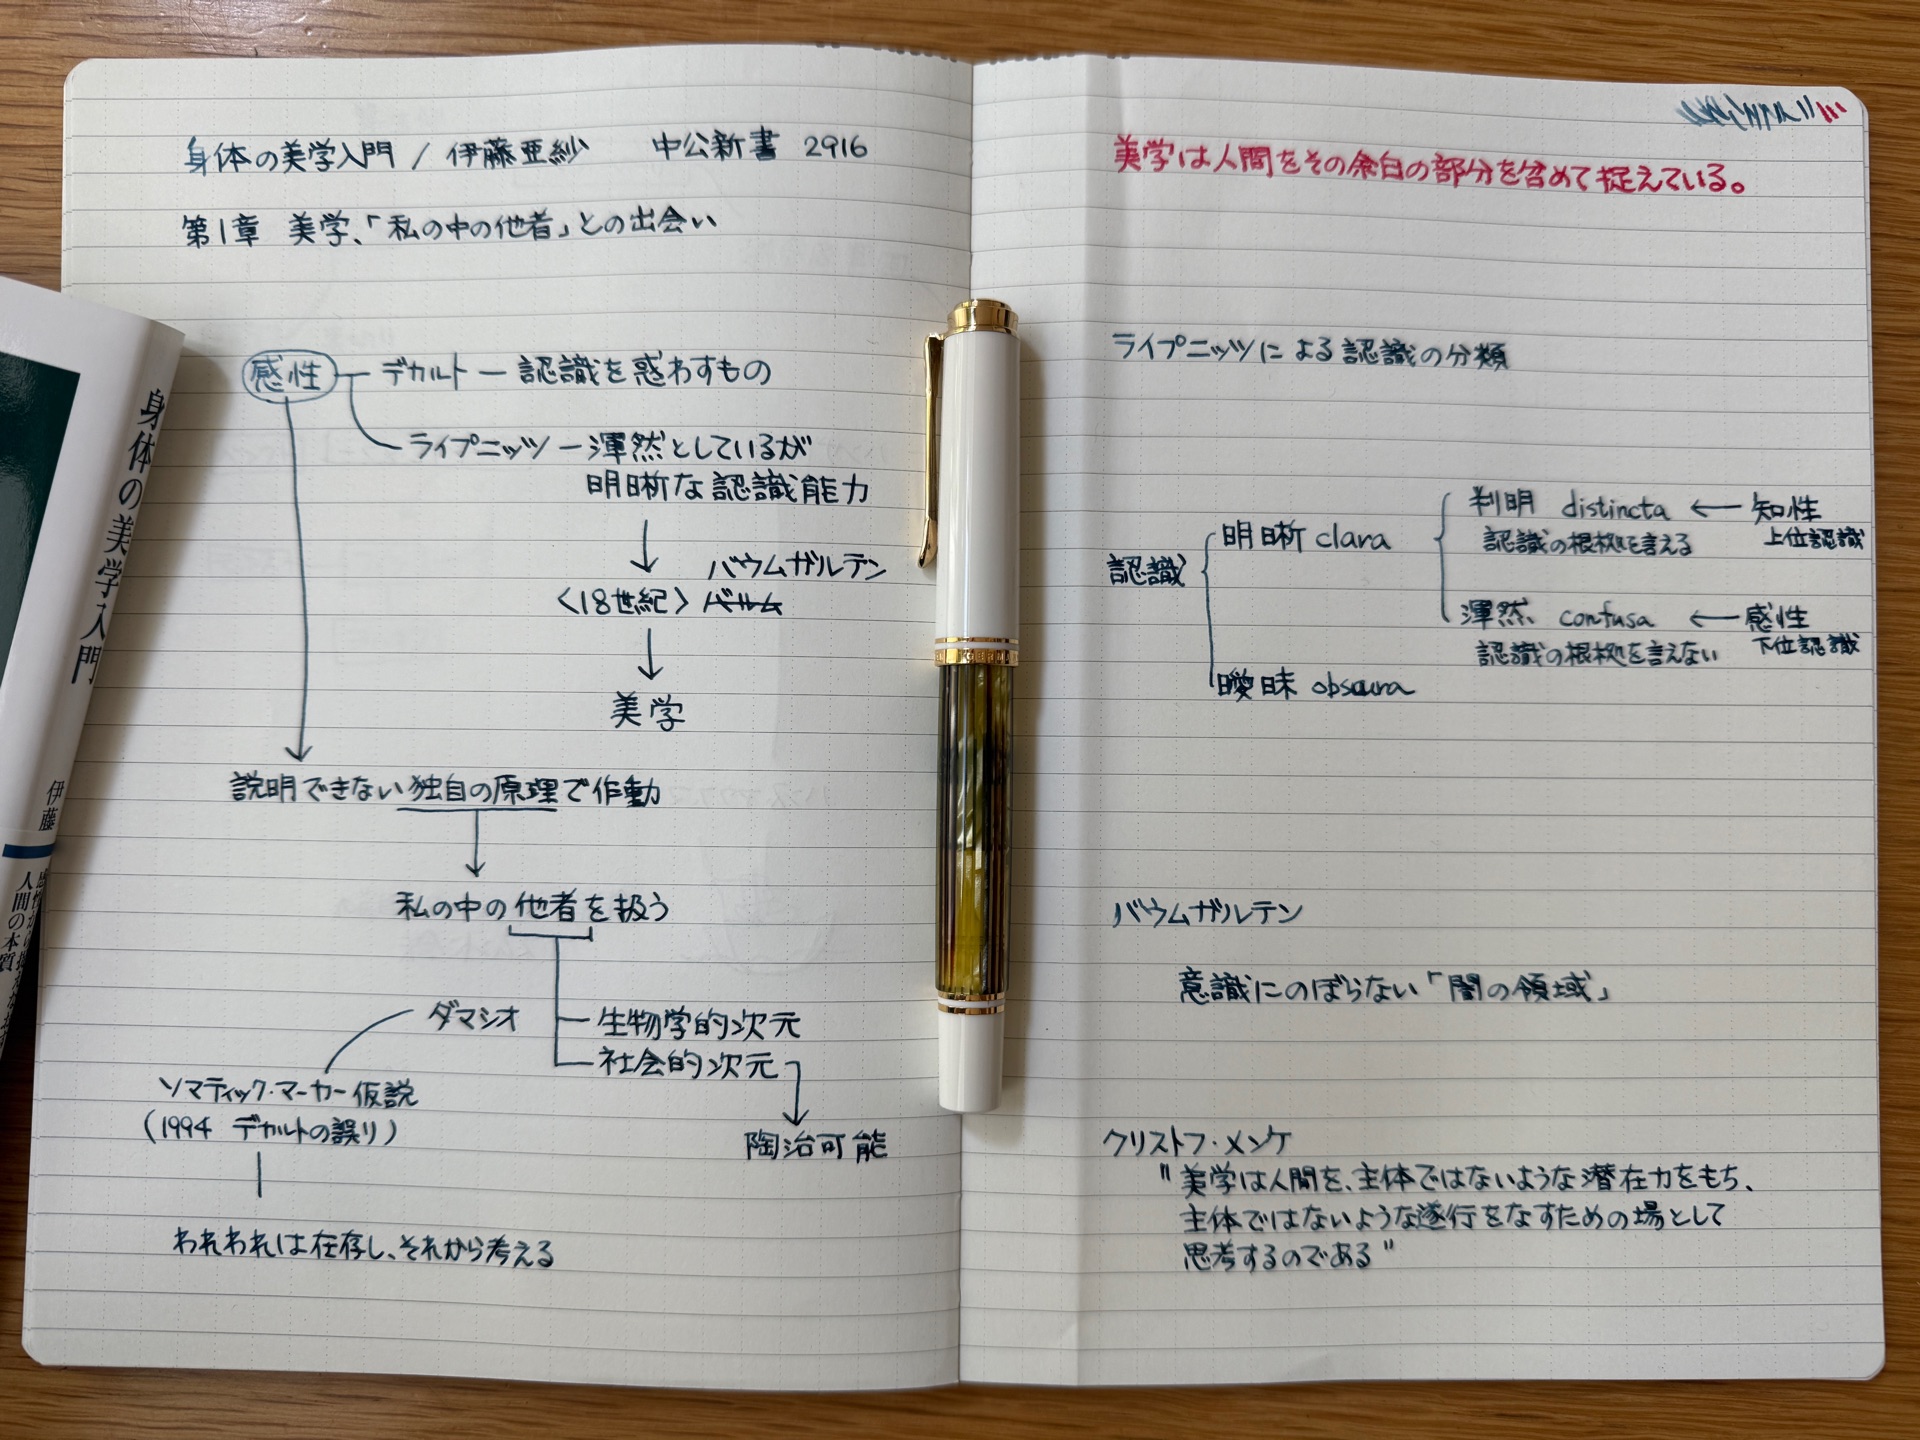 身体の美学入門 / 伊藤亜紗 中公新書 2916
第1章 美学、「私の中の他者」との出会い
感性 デカルト — 認識を惑わすもの
ライプニッツ — 渾然としているが
明晰な認識能力
バウムガルテン
〈18世紀〉 バルム
美学
説明できない独自の原理で作動
私の中の他者を扱う
ダマシオ
生物学的次元
社会的次元
ソマティック・マーカー仮説
(1994 デカルトの誤り)
陶冶可能
われわれは在存し、それから考える
美学は人間をその余白の部分を含めて捉えている。
ライプニッツによる認識の分類
判明 distincta ← 知性
認識の根拠を言える 上位認識
明晰 clara
認識
渾然 confusa ← 感性
認識の根拠を言えない 下位認識
曖昧 obscura
バウムガルテン
意識にのぼらない「闇の領域」
クリストフ・メンケ
"美学は人間を、主体ではないような潜在力をもち、
主体ではないような遂行をなすための場として
思考するのである"
身体の美学入門
伊藤
人間の本質